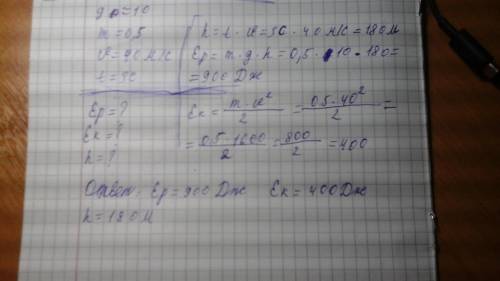 g ≈ 10
m = 0,5
h = t · v = 5с · 40 м/с = 180 м
v = 90 м/с
Ep = m · g · h = 0,5 · 10 · 180 =
t = 5с
= 900 Дж
Ep = ?
Ek = ?
Ek = m · v² / 2 = 0,5 · 40² / 2 =
h = ?
= 0,5 · 1600 / 2 = 800 / 2 = 400
Ответ. Ep = 900 Дж Ek = 400 Дж
h = 180 м